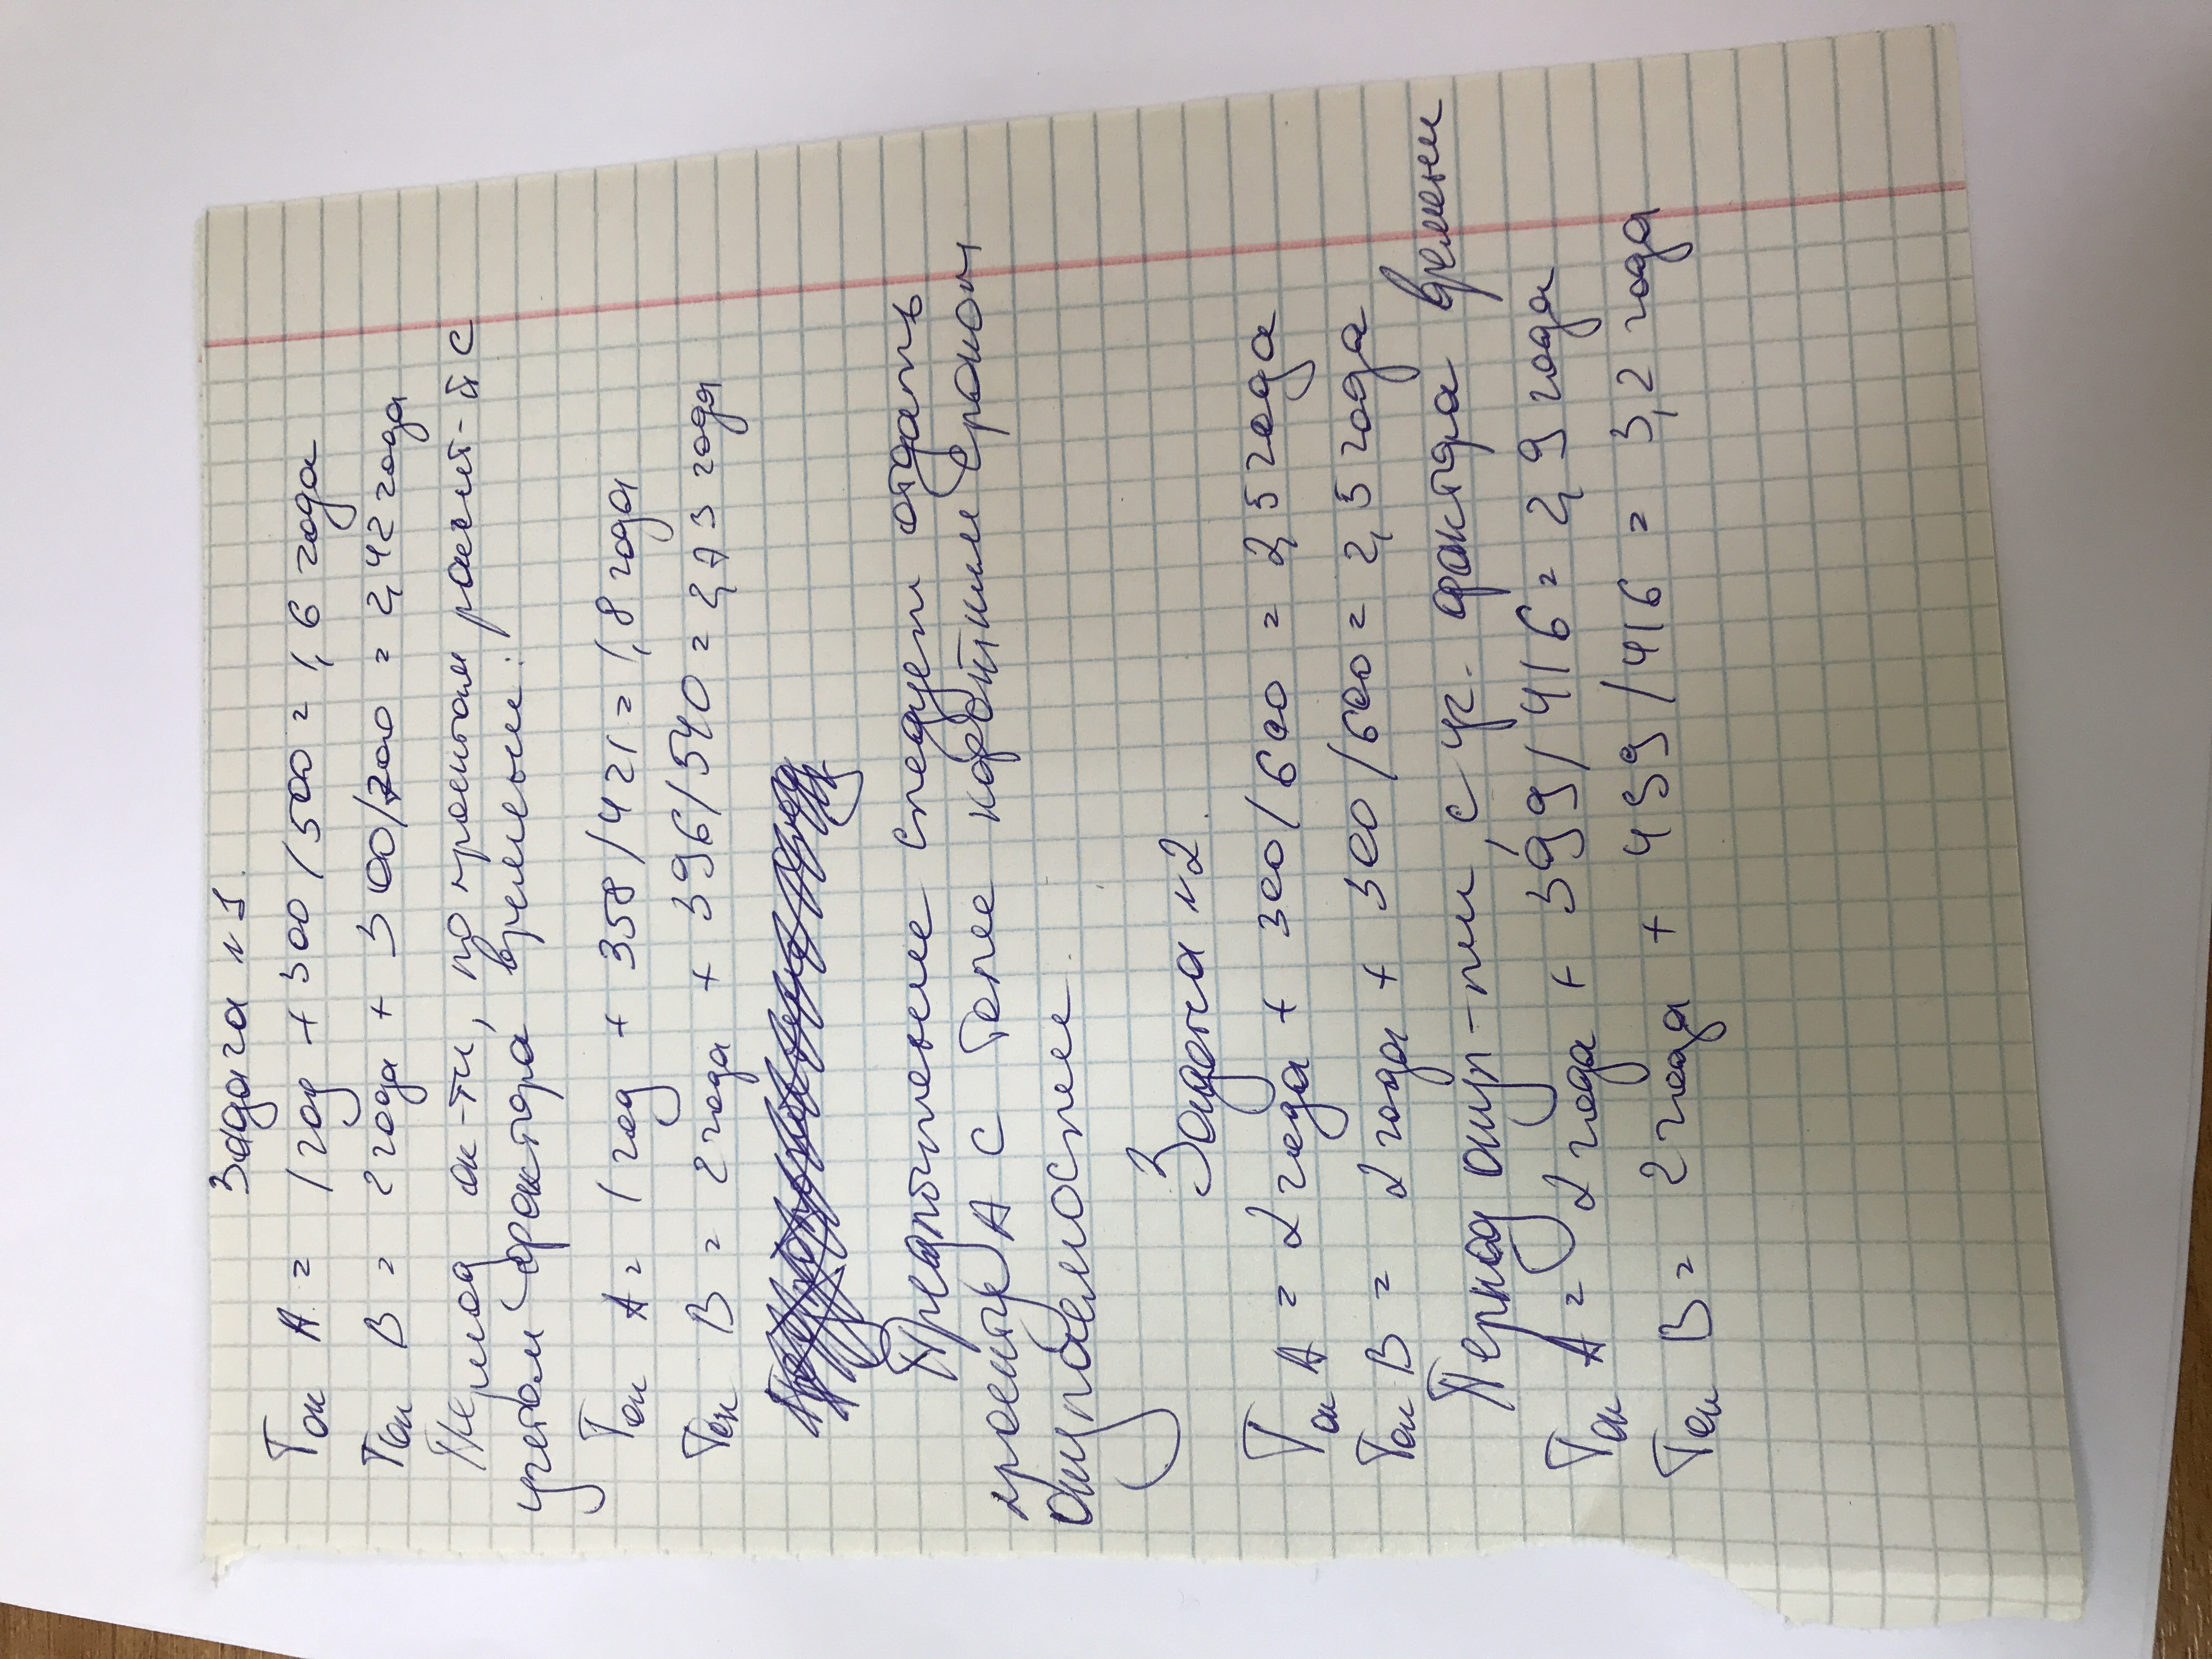 Задача №1.
Ток А = 1 год + 300/500 = 1,6 года
Ток В = 2 года + 300/700 = 2,42 года
Период ок-ти, по проектам расчит-й с
учетом фактора времени:
Ток А = 1 год + 358/421 = 1,8 года
Ток В = 2 года + 396/540 = 2,73 года
Предпочтение следует отдать
проекту А с более коротким сроком
окупаемости.
Задача №2.
Ток А = 2 года + 300/600 = 2,5 года
Ток В = 2 года + 300/600 = 2,5 года
Период окуп-ти, с уч. фактора времени
Ток А = 2 года + 399/416 = 2,9 года
Ток В = 2 года + 499/416 = 3,2 года